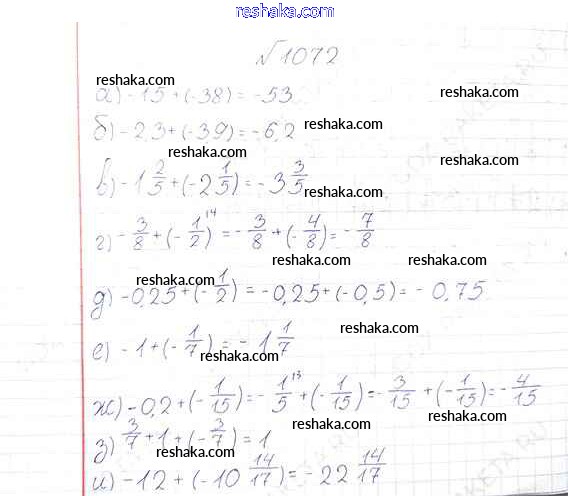 reshaka.com
№1072
reshaka.com
а) -15 + (-38) = -53
reshaka.com
б) -2,3 + (-3,9) = -6,2
reshaka.com
reshaka.com
reshaka.com
в) -1 2/5 + (-2 1/5) = -3 3/5
reshaka.com
г) -3/8 + (-1/2)^14 = -3/8 + (-4/8) = -7/8
reshaka.com
reshaka.com
reshaka.com
д) -0,25 + (-1/2) = -0,25 + (-0,5) = -0,75
reshaka.com
е) -1 + (-1/7) = -1 1/7
reshaka.com
ж) -0,2 + (-1/15) = -1/5^13 + (-1/15) = -3/15 + (-1/15) = -4/15
reshaka.com
reshaka.com
з) 3/7 + 1 + (-3/7) = 1
reshaka.com
и) -12 + (-10 14/17) = -22 14/17
reshaka.com
reshaka.com